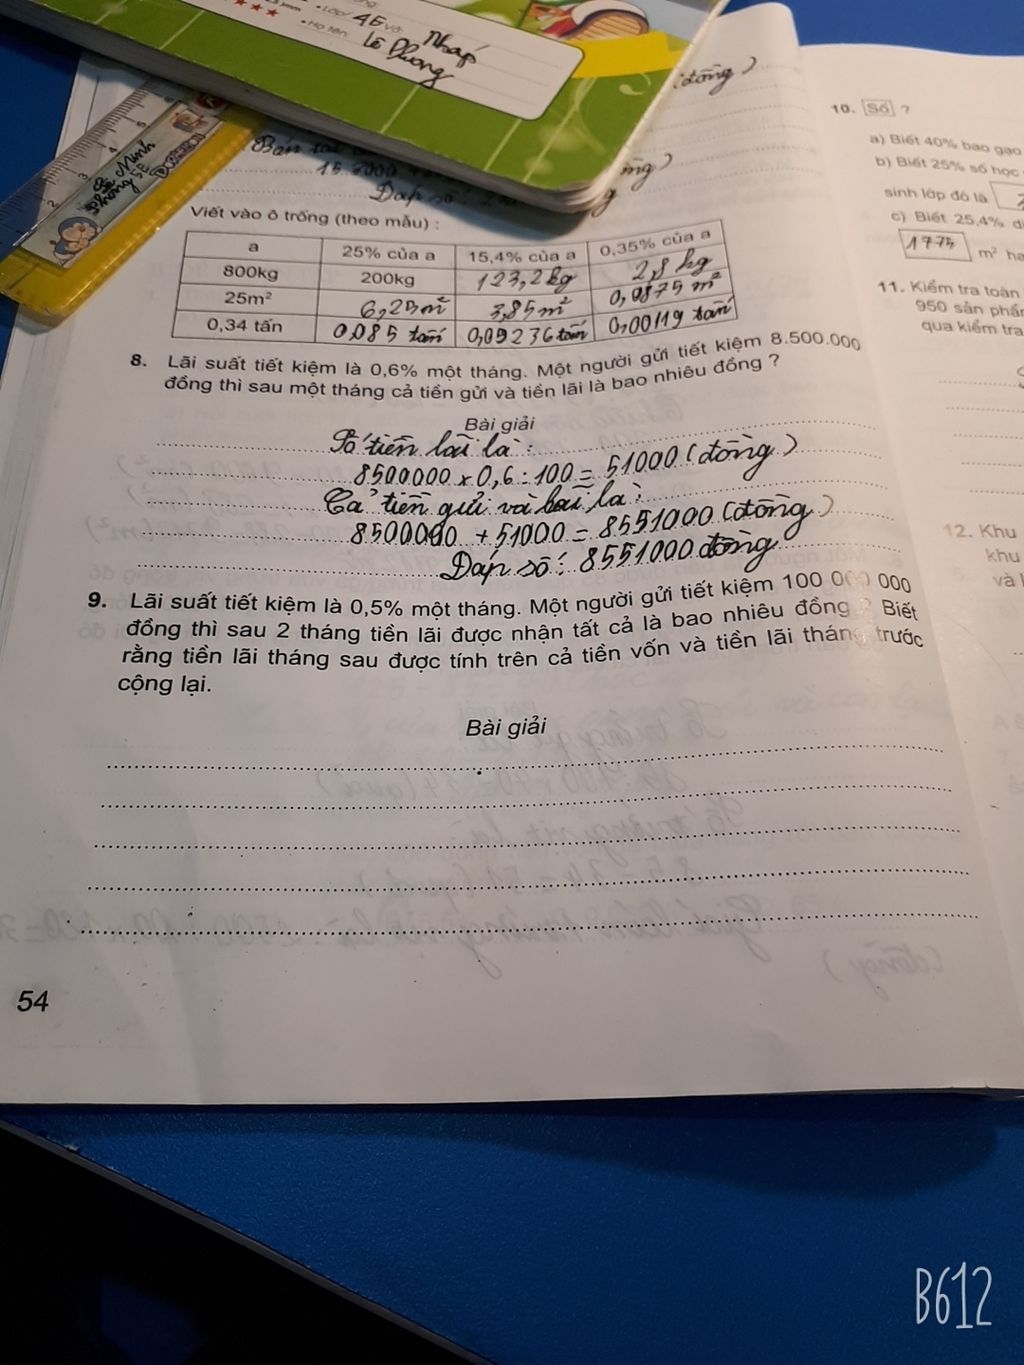 Lớp: 4E Vở: Nháp
Họ tên: Lê Phong
(đồng)
15
Đáp số:
Viết vào ô trống (theo mẫu) :
a 25% của a 15,4% của a 0,35% của a
800kg 200kg 123,2kg 2,8 kg
25m² 6,25m² 3,85m² 0,0875 m²
0,34 tấn 0,085 tấn 0,05236 tấn 0,00119 tấn
8. Lãi suất tiết kiệm là 0,6% một tháng. Một người gửi tiết kiệm 8.500.000
đồng thì sau một tháng cả tiền gửi và tiền lãi là bao nhiêu đồng ?
Bài giải
Số tiền lãi là:
8500000 x 0,6 : 100 = 51000 (đồng)
Cả tiền gửi và lãi là:
8500000 + 51000 = 8551000 (đồng)
Đáp số: 8551000 đồng
9. Lãi suất tiết kiệm là 0,5% một tháng. Một người gửi tiết kiệm 100 000 000
đồng thì sau 2 tháng tiền lãi được nhận tất cả là bao nhiêu đồng ? Biết
rằng tiền lãi tháng sau được tính trên cả tiền vốn và tiền lãi tháng trước
cộng lại.
Bài giải
54
10. Số ?
a) Biết 40% bao gạo
b) Biết 25% số học
sinh lớp đó là
c) Biết 25,4%
1775 m²
11. Kiểm tra toàn
950 sản phẩm
qua kiểm tra
12. Khu
khu
và
B612